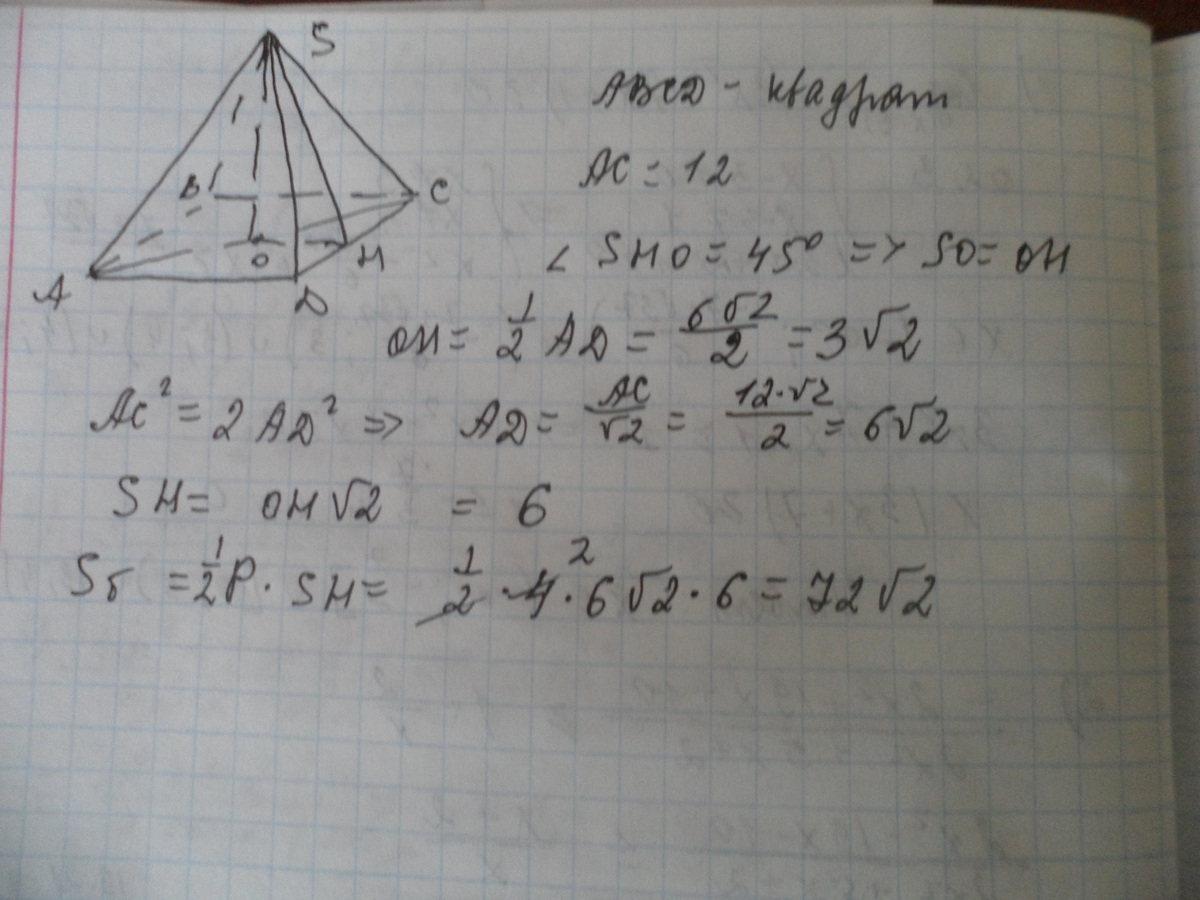 S
ABCD - квадрат
AC = 12
B
C
∠ SHO = 45° => SO = OH
O
H
A
D
OH = 1/2 AD = 6√2/2 = 3√2
AC² = 2AD² => AD = AC/√2 = 12·√2/2 = 6√2
SH = OH√2 = 6
Sб = 1/2 P · SH = 1/2 · 4 2 · 6√2 · 6 = 72√2